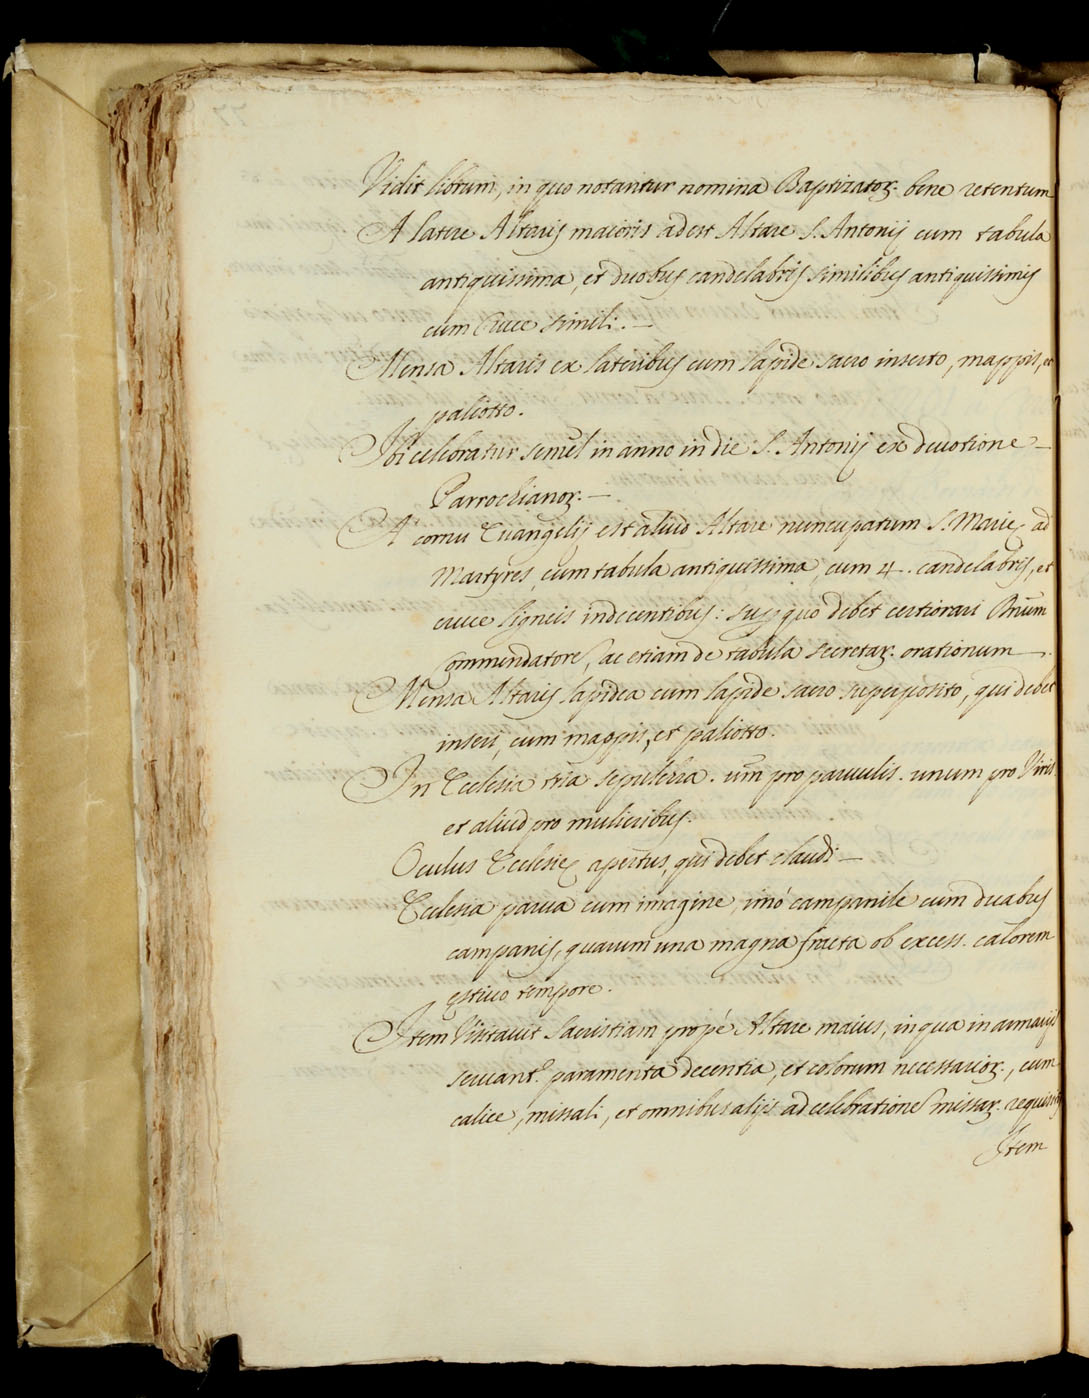 Vidit librum, in quo notantur nomina Baptizatoꝝ. bene retentum
A latere Altaris maioris adest Altare S. Antonij cum tabula
antiquissima, et duobus candelabris similibus antiquissimis
cum Cruce simili. —
Mensa Altaris ex lateribus cum lapide sacro inserto, mappis, et
paliotto.
Ibi celebratur semel in anno in die S. Antonij ex deuotione —
Parrochianoꝝ. —
A cornu Euangelij est aliud Altare nuncupatum S. Marię ad
Martyres, cum tabula antiquissima, cum 4. candelabris, et
cruce ligneis indecentibus: sup quo debet certiorari Dnūm
Commendatorē, ac etiam de tabula secretaꝝ. orationum —.
Mensa Altaris lapidea cum lapide sacro superposito, qui debet
inseri, cum mappis, et paliotto.
In Ecclesia tria sepulchra. unū pro paruulis. unum pro Viris
et aliud pro mulieribus.
Oculus Ecclesię apertus, qui debet claudi —
Ecclesia parua cum imagine, imò campanile cum duabus
campanis, quarum una magna fracta ob excess. calorem
ęstiuo tempore.
Item Visitauit Sacristiam propè Altare maius, in qua in armarijs
seruantʳ. paramenta decentia, et colorum necessarioꝝ., cum
calice, missali, et omnibus alijs ad celebrationē missaꝝ. requisitis
Item